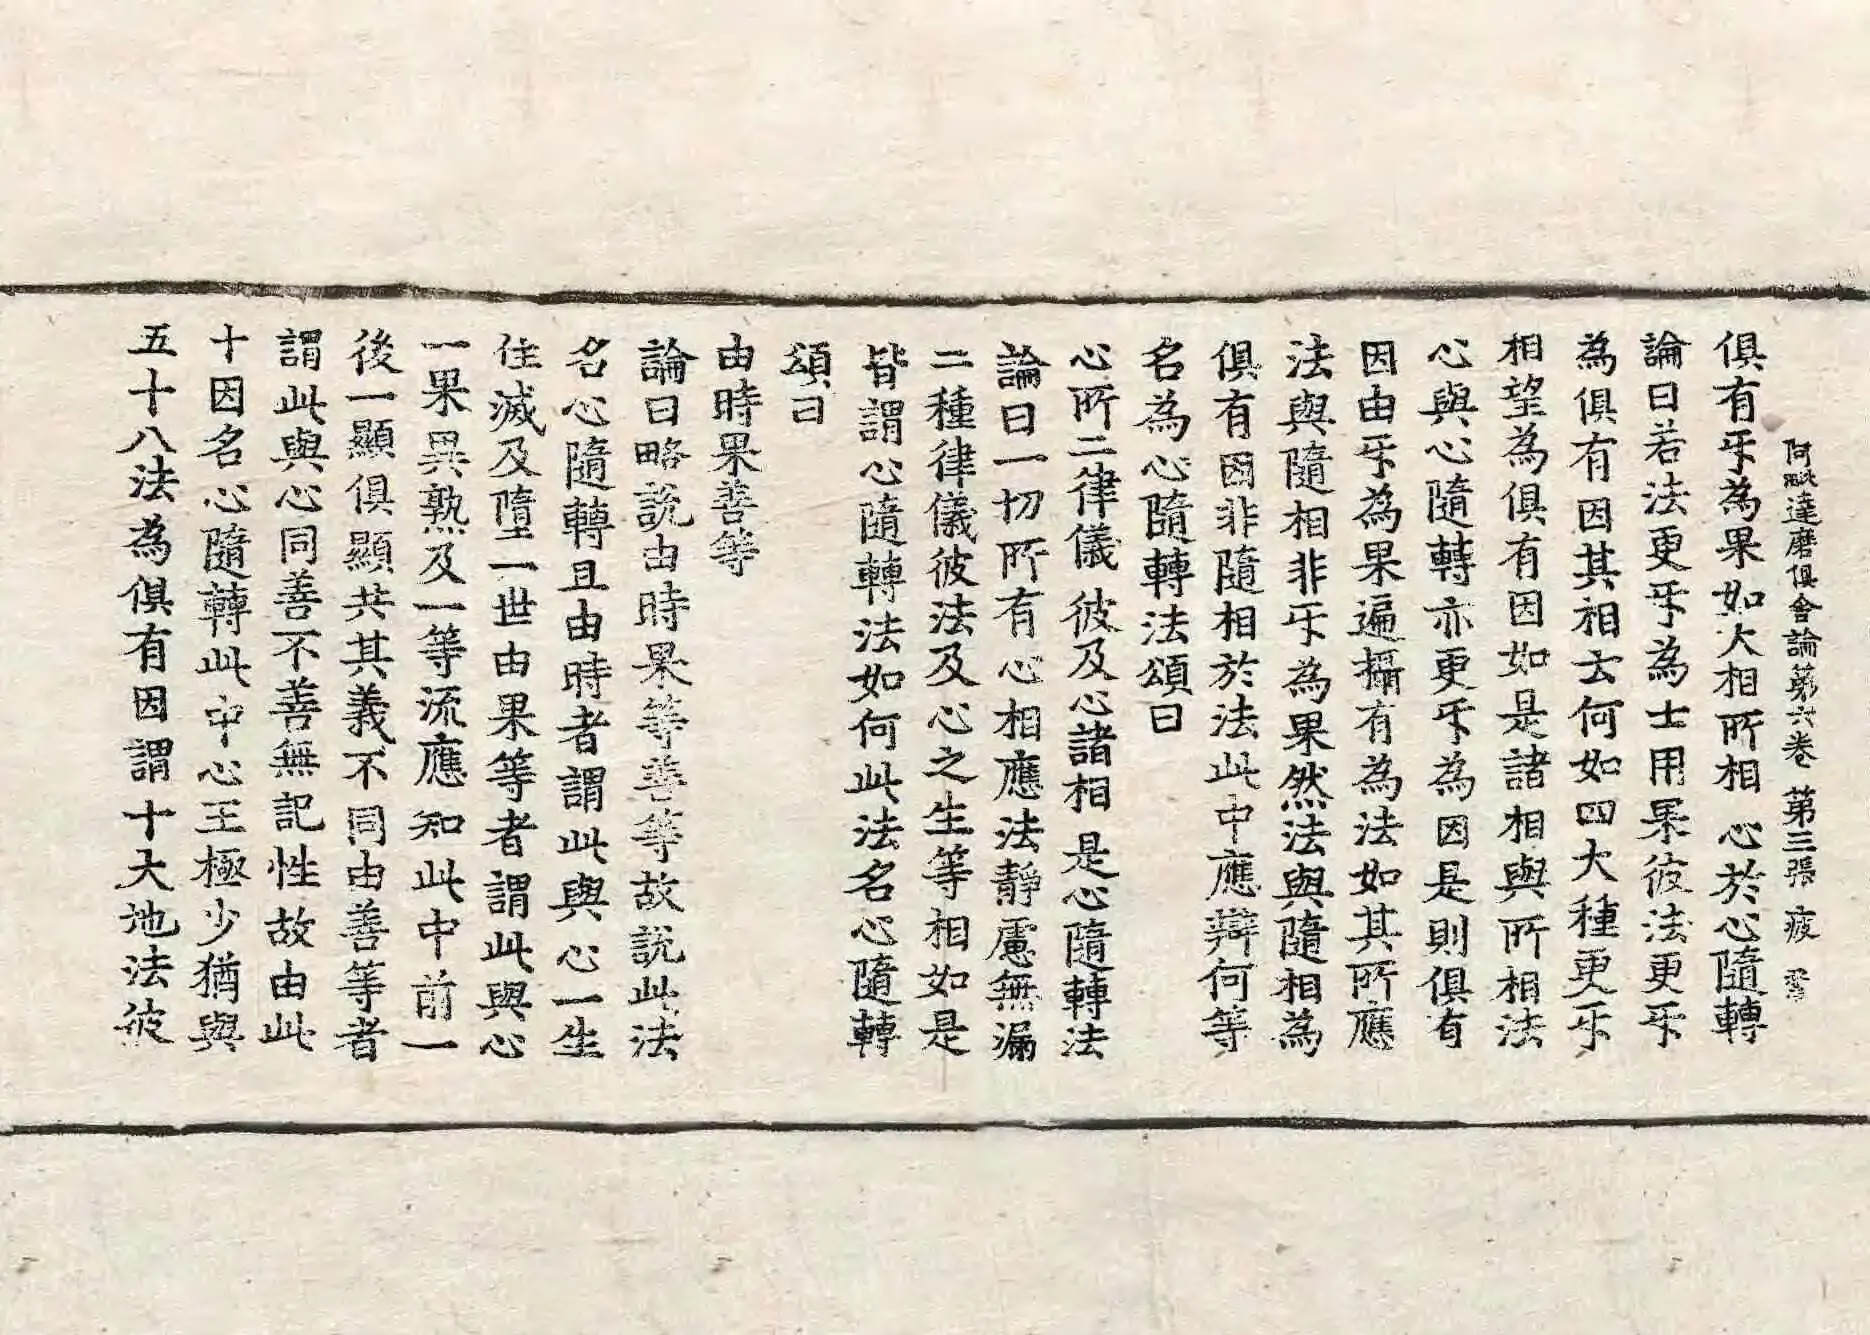 阿毗達磨俱舍論第六卷 第三張 疲
俱有㸦為果如大相所相心於心隨轉
論曰若法更㸦為士用果彼法更㸦
為俱有因其相云何如四大種更㸦
相望為俱有因如是諸相與所相法
心與心隨轉亦更㸦為因是則俱有
因由㸦為果遍攝有為法如其所應
法與隨相非㸦為果然法與隨相為
俱有因非隨相於法此中應辯何等
名為心隨轉法頌曰
心所二律儀彼及心諸相是心隨轉法
論曰一切所有心相應法靜慮無漏
二種律儀彼法及心之生等相如是
皆謂心隨轉法如何此法名心隨轉
頌曰
由時果善等
論曰略說由時果等善等故說此法
名心隨轉且由時者謂此與心一生
住滅及墮一世由果等者謂此與心
一果異熟及一等流應知此中前一
後一顯俱顯共其義不同由善等者
謂此與心同善不善無記性故由此
十因名心隨轉此中心王極少猶與
五十八法為俱有因謂十大地法彼